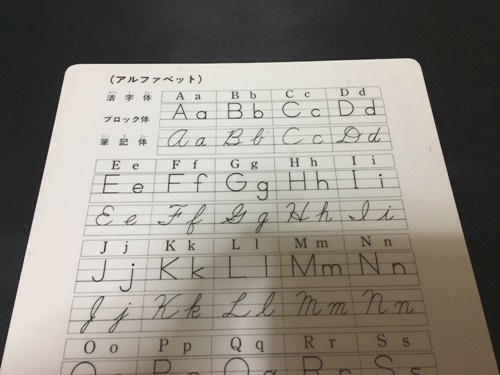 （アルファベット）
活字体 A a B b C c D d
ブロック体 A a B b C c D d
筆記体 A a B b C c D d
E e F f G g H h I i
E e F f G g H h I i
E e F f G g H h I i
J j K k L l M m N n
J j K k L l M m N n
J j K k L l M m N n
O o P p Q q R r S s
O o P p Q q R r S s